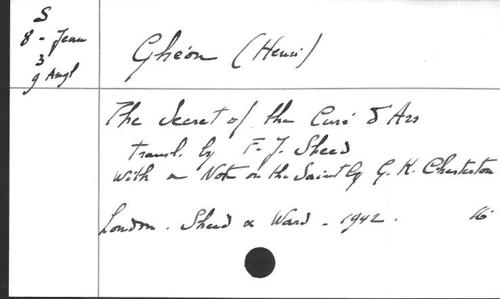 S
8 - Jean
3
9 Angl
Ghéon (Henri)
The Secret of the Curé d'Ars
transl. by F. J. Sheed
with a Note on the Saint by G. K. Chesterton
London. Sheed & Ward - 1942. 16°